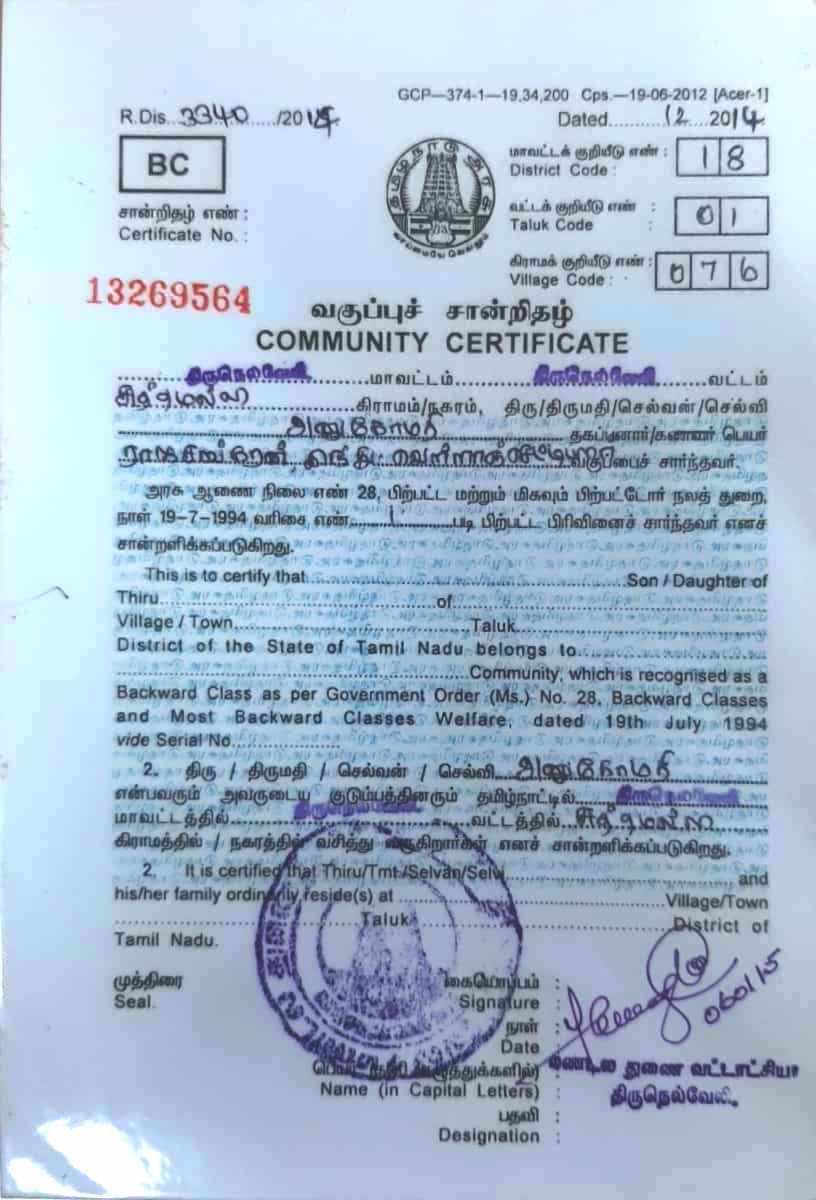 GCP—374-1—19,34,200 Cps.—19-06-2012 [Acer-1]
R.Dis. 3340 /2014
Dated.......... 12 2014
BC
தமிழ்நாடு அரசு
வாய்மையே வெல்லும்
மாவட்டக் குறியீடு எண் : 18
District Code :
வட்டக் குறியீடு எண் : 01
Taluk Code :
கிராமக் குறியீடு எண் : 076
Village Code :
சான்றிதழ் எண் :
Certificate No. :
13269564
வகுப்புச் சான்றிதழ்
COMMUNITY CERTIFICATE
திருநெல்வேலி மாவட்டம் திருநெல்வேலி வட்டம்
கிராமம்/நகரம், திரு/திருமதி/செல்வன்/செல்வி
அனுகோமதி தகப்பனார்/கணவர் பெயர்
வகுப்பைச் சார்ந்தவர்.
அரசு ஆணை நிலை எண் 28, பிற்பட்ட மற்றும் மிகவும் பிற்பட்டோர் நலத் துறை,
நாள் 19-7-1994 வரிசை எண் 1 படி பிற்பட்ட பிரிவினைச் சார்ந்தவர் எனச்
சான்றளிக்கப்படுகிறது.
This is to certify that.......... Son / Daughter of
Thiru.......... of ..........
Village / Town.......... Taluk..........
District of the State of Tamil Nadu belongs to..........
.......... Community, which is recognised as a
Backward Class as per Government Order (Ms.) No. 28, Backward Classes
and Most Backward Classes Welfare, dated 19th July 1994
vide Serial No..........
2. திரு / திருமதி / செல்வன் / செல்வி அனுகோமதி
என்பவரும் அவருடைய குடும்பத்தினரும் தமிழ்நாட்டில் திருநெல்வேலி
மாவட்டத்தில் திருநெல்வேலி வட்டத்தில்
கிராமத்தில் / நகரத்தில் வசித்து வருகிறார்கள் எனச் சான்றளிக்கப்படுகிறது.
2. It is certified that Thiru/Tmt./Selvan/Selvi.......... and
his/her family ordinarily reside(s) at .......... Village/Town
.......... Taluk .......... District of
Tamil Nadu.
முத்திரை
Seal.
கையொப்பம் :
Signature :
நாள் :
Date
06/01/15
பெயர் (தனி எழுத்துக்களில்) :
Name (in Capital Letters) :
மண்டல துணை வட்டாட்சியர்
திருநெல்வேலி.
பதவி :
Designation :